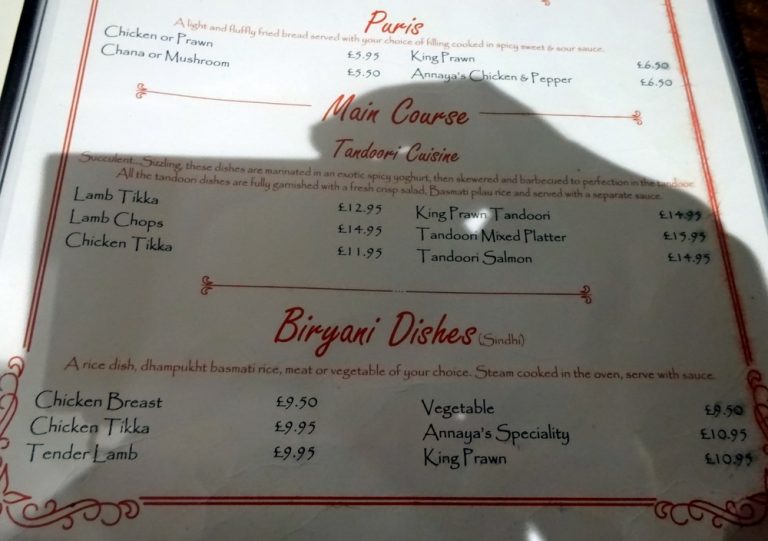 Puris
A light and fluffly fried bread served with your choice of filling cooked in spicy sweet & sour sauce.
Chicken or Prawn £5.95 King Prawn £6.50
Chana or Mushroom £5.50 Annaya's Chicken & Pepper £6.50
Main Course
Tandoori Cuisine
Succulent... Sizzling, these dishes are marinated in an exotic spicy yoghurt, then skewered and barbecued to perfection in the tandoor.
All the tandoori dishes are fully garnished with a fresh crisp salad, Basmati pilau rice and served with a separate sauce.
Lamb Tikka £12.95 King Prawn Tandoori £14.95
Lamb Chops £14.95 Tandoori Mixed Platter £15.95
Chicken Tikka £11.95 Tandoori Salmon £14.95
Biryani Dishes (Sindhi)
A rice dish, dhampukht basmati rice, meat or vegetable of your choice. Steam cooked in the oven, serve with sauce.
Chicken Breast £9.50 Vegetable £8.50
Chicken Tikka £9.95 Annaya's Speciality £10.95
Tender Lamb £9.95 King Prawn £10.95